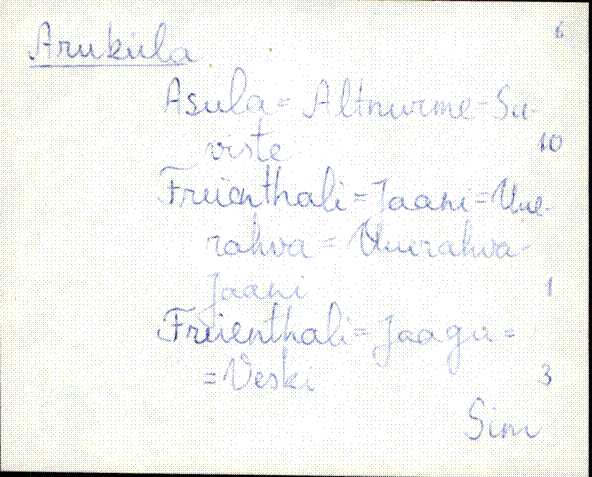 Aruküla 6
Asula = Altnurme-Su-
viste 10
Freienthali = Jaani = Uue-
rahva = Uuerahva-
Jaani 1
Freienthali = Jaagu =
= Veski 3
Sim